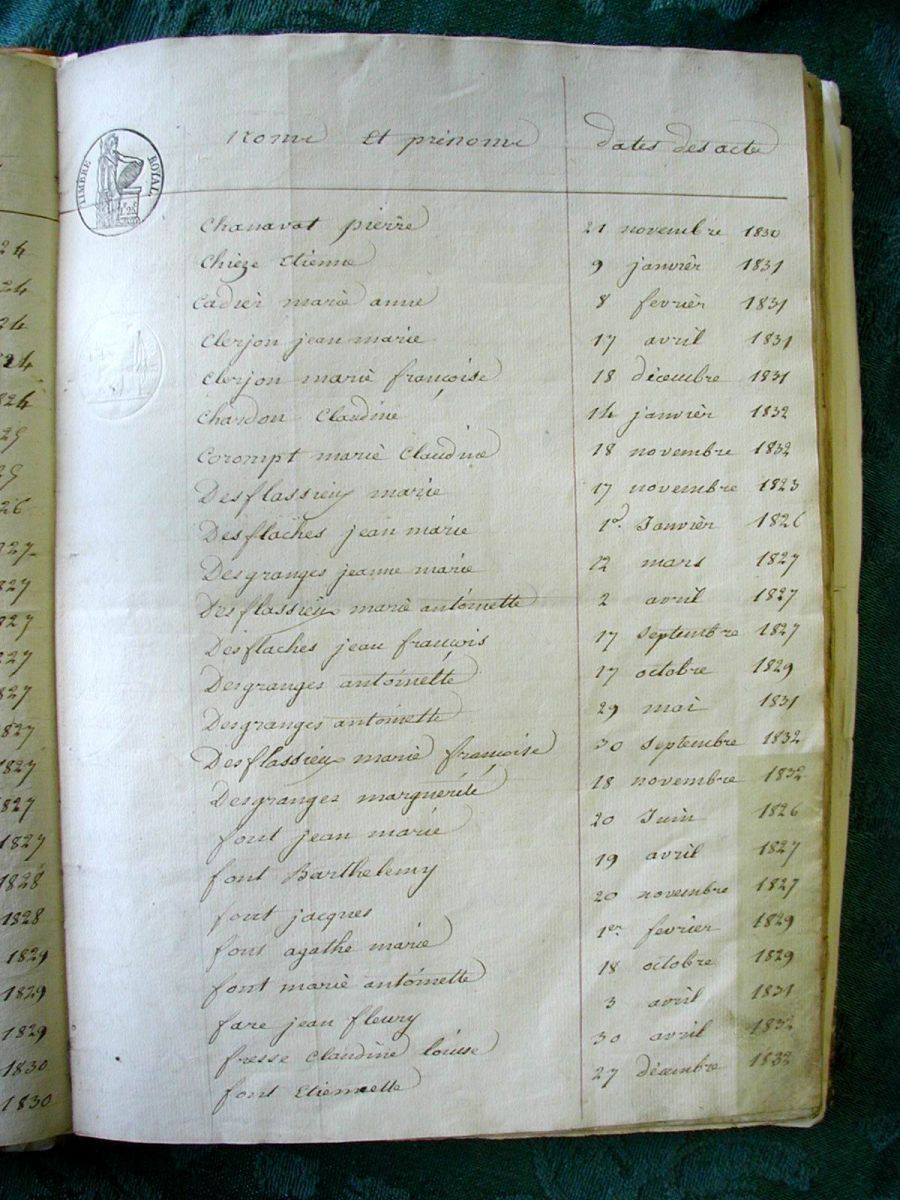 TIMBRE ROYAL
Noms et prénoms dates des actes
Chanavat pierre 21 novembre 1830
Chieze Etienne 9 janvièr 1831
Cadier marie anne 8 fevrièr 1831
Clerjon jean marie 17 avril 1831
Clerjon marie françoise 18 décembre 1831
Chardon Claudine 14 janvièr 1832
Corompt marie Claudine 18 novembre 1832
Desflassieux marie 17 novembre 1823
Desflaches jean marie 1er Janvièr 1826
Desgranges jeanne marie 12 mars 1827
Desflassieux marie antoinette 2 avril 1827
Desflaches jean françois 17 septembre 1827
Desgranges antoinette 17 octobre 1829
Desgranges antoinette 29 mai 1831
Desflassieux marie françoise 30 septembre 1832
Desgranges marguérité 18 novembre 1832
font jean marie 20 Juin 1826
font Barthelemy 19 avril 1827
font jacques 20 novembre 1827
font agathe marie 1er fevrier 1829
font marie antoinette 18 octobre 1829
fare jean fleury 3 avril 1831
fresse claudine louise 30 avril 1832
font Etiennette 27 décembre 1832